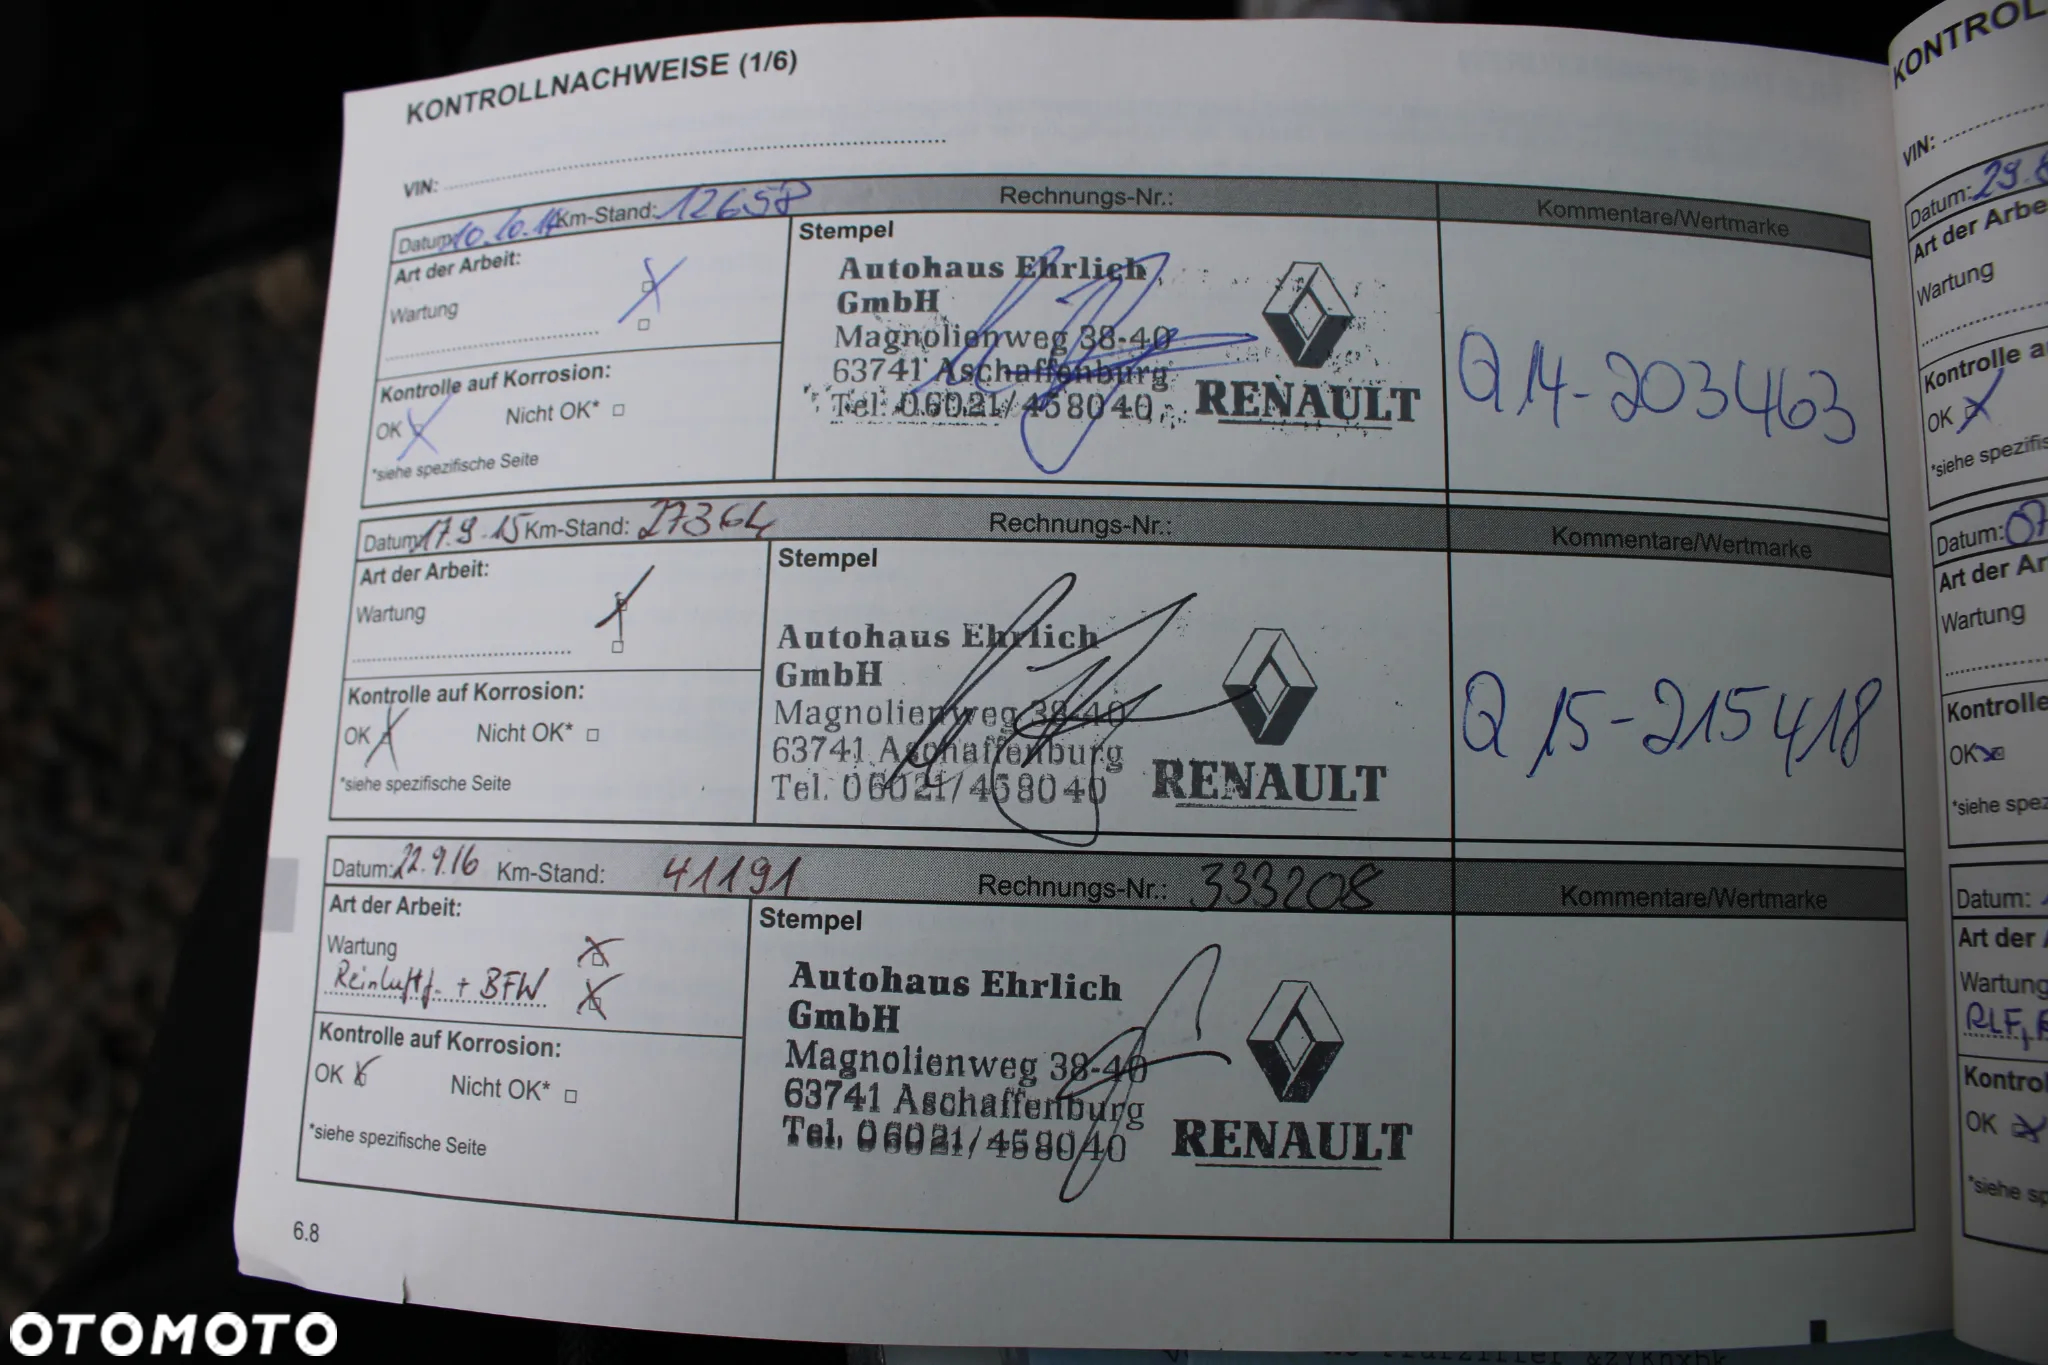 KONTROLLNACHWEISE (1/6)
VIN:
Datum: 10.10.14 Km-Stand: 12658 Rechnungs-Nr.: Kommentare/Wertmarke
Art der Arbeit:
Wartung
Kontrolle auf Korrosion:
OK Nicht OK*
*siehe spezifische Seite
Stempel
Autohaus Ehrlich
GmbH
Magnolienweg 38-40
63741 Aschaffenburg
Tel. 06021/458040
RENAULT
Q 14-203463
Datum: 17.9.15 Km-Stand: 27364 Rechnungs-Nr.: Kommentare/Wertmarke
Art der Arbeit:
Wartung
Kontrolle auf Korrosion:
OK Nicht OK*
*siehe spezifische Seite
Stempel
Autohaus Ehrlich
GmbH
Magnolienweg 38-40
63741 Aschaffenburg
Tel. 06021/458040
RENAULT
Q 15-215418
Datum: 22.9.16 Km-Stand: 41191 Rechnungs-Nr.: 333208 Kommentare/Wertmarke
Art der Arbeit:
Wartung
Reinluftf. + BFW
Kontrolle auf Korrosion:
OK Nicht OK*
*siehe spezifische Seite
Stempel
Autohaus Ehrlich
GmbH
Magnolienweg 38-40
63741 Aschaffenburg
Tel. 06021/458040
RENAULT
6.8
VIN:
Datum: 29.
Art der
Wartung
Kontrolle
OK
*siehe
Datum: 07
Art der
Wartung
Kontrolle
OK
*siehe
Datum:
Art der
Wartung
RLF,
OK
*siehe
OTOMOTO